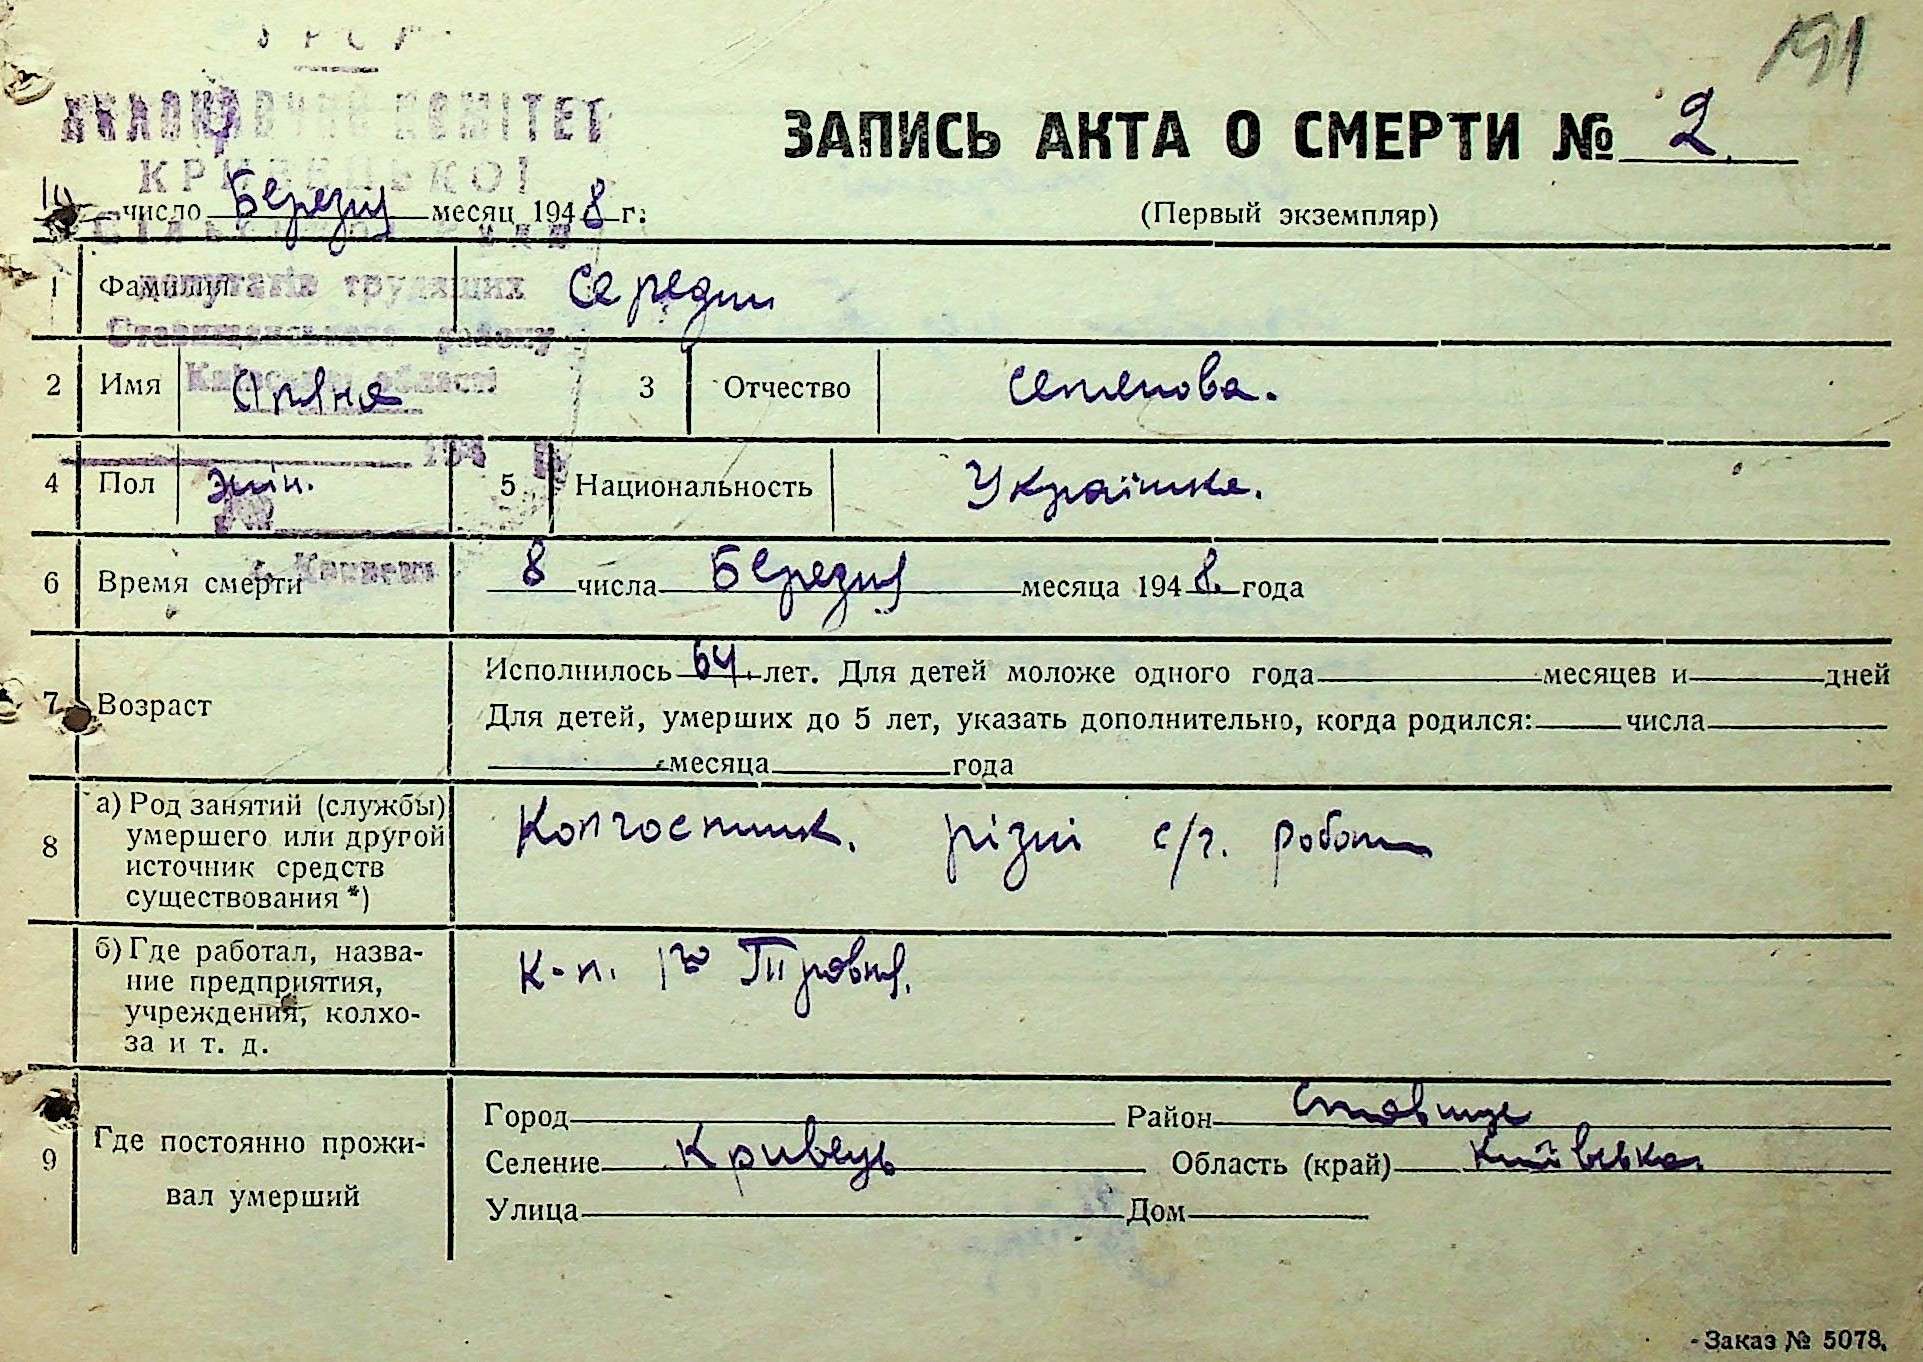 УРСР
191
ВИКОНАВЧИЙ КОМІТЕТ
ЗАПИСЬ АКТА О СМЕРТИ № 2.
КРИВЕЦЬКОЇ
10 число Березня месяц 1948 г.
(Первый экземпляр)
Сільської Ради
депутатів трудящих
1 Фамилия Середни
Ставищанського району
2 Имя 3 Отчество Семенова.
Київської області
194
4 Пол жін. 5 Национальность Українка.
с. Кривець
6 Время смерти 8 числа Березня месяца 1948. года
7 Возраст Исполнилось 64. лет. Для детей моложе одного года месяцев и дней
Для детей, умерших до 5 лет, указать дополнительно, когда родился: числа
месяца года
8 а) Род занятий (службы) умершего или другой источник средств существования *) Колгоспник. різні с/г. роботи
б) Где работал, название предприятия, учреждения, колхоза и т. д. К-п. 1го Травня.
9 Где постоянно проживал умерший
Город Район Ставище
Селение Кривець Область (край) Київська.
Улица Дом
Заказ № 5078.